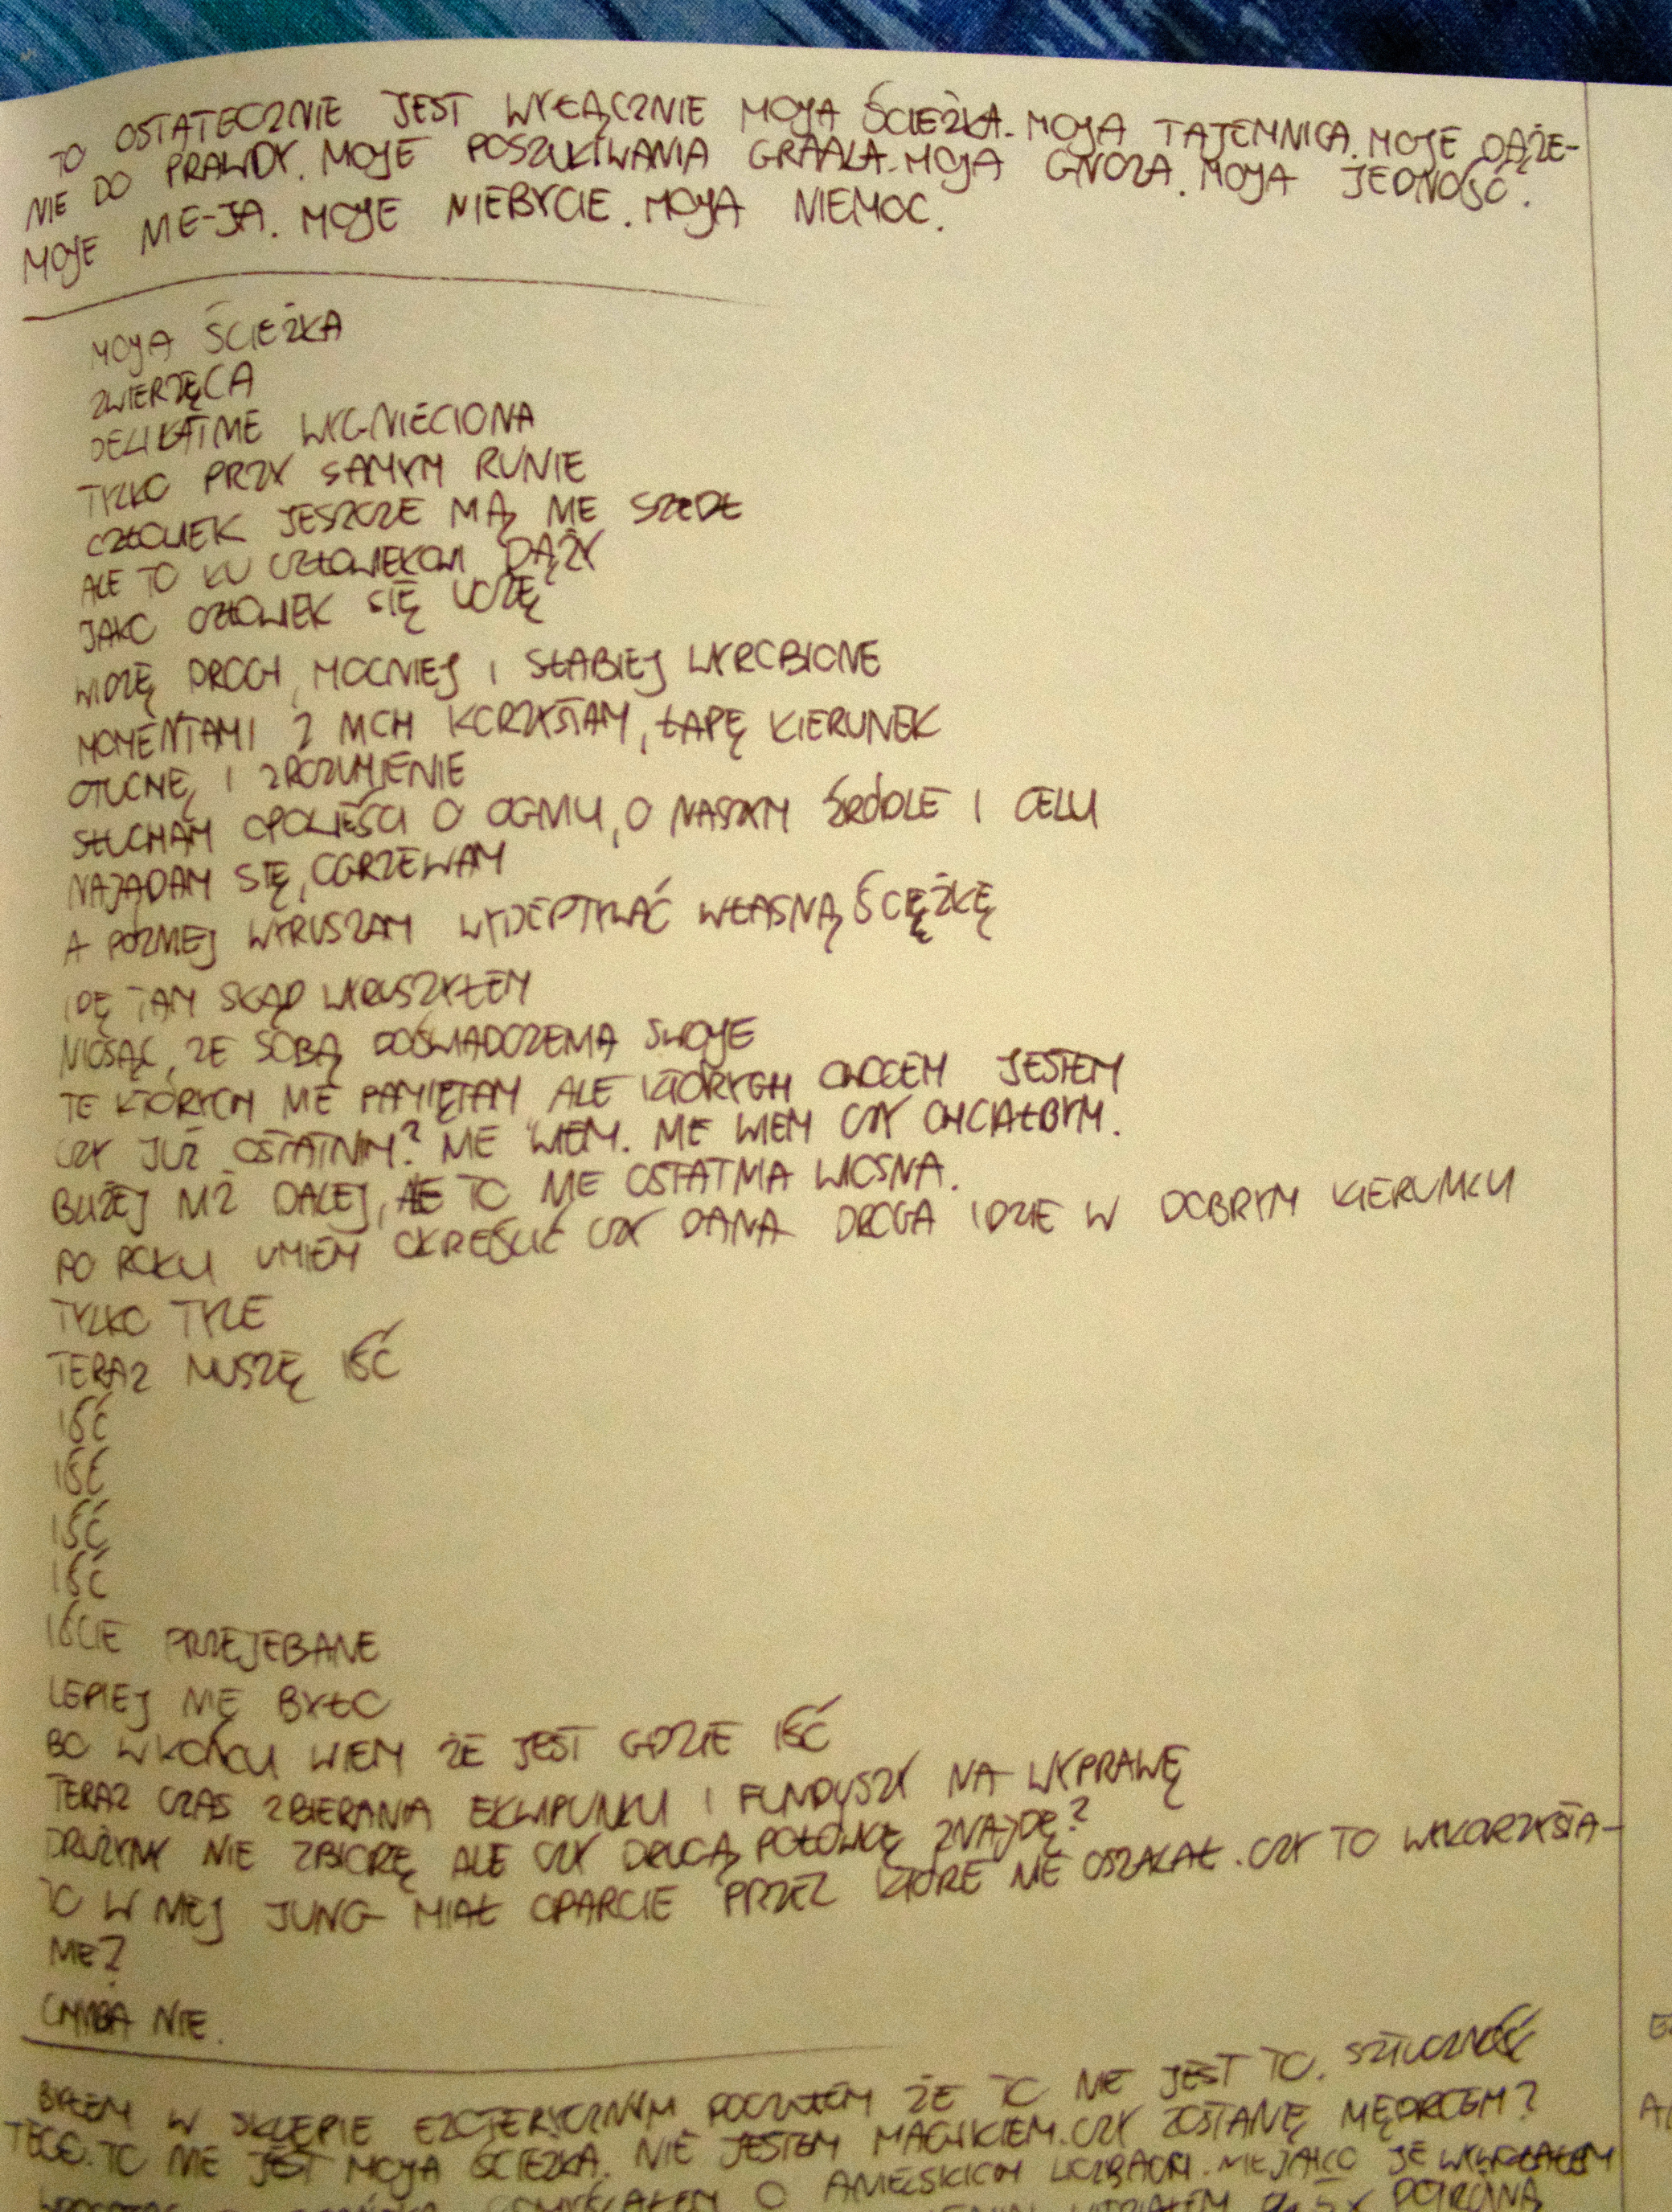 TO OSTATECZNIE JEST WYŁĄCZNIE MOJA ŚCIEŻKA. MOJA TAJEMNICA. MOJE DĄŻE-
NIE DO PRAWDY. MOJE POSZUKIWANIA GRAALA. MOJA GNOZA. MOJA JEDNOŚĆ.
MOJE NIE-JA. MOJE NIEBYCIE. MOJA NIEMOC.
MOJA ŚCIEŻKA
ZWIERZĘCA
DELIKATNIE WYGNIECIONA
TYLKO PRZY SAMYM RUNIE
CZŁOWIEK JESZCZE NIĄ NIE SZEDŁ
ALE TO KU CZŁOWIEKOWI DĄŻY
JAKO CZŁOWIEK SIĘ UCZĘ
WIDZĘ DROGI, MOCNIEJ I SŁABIEJ WYROBIONE
MOMENTAMI Z NICH KORZYSTAM, ŁAPĘ KIERUNEK
OTUCHĘ I ZROZUMIENIE
SŁUCHAM OPOWIEŚCI O OGNIU, O NASZYM ŹRÓDLE I CELU
NAJADAM SIĘ, OGRZEWAM
A PÓZNIEJ WYRUSZAM WYDEPTYWAĆ WŁASNĄ ŚCIĘŻKĘ
IDĘ TAM SKĄD WYRUSZYŁEM
NIOSĄC ZE SOBĄ DOŚWIADCZENIA SWOJE
TE KTÓRYCH NIE PAMIĘTAM ALE KTÓRYCH OWOCEM JESTEM
CZY JUŻ OSTATNIM? NIE WIEM. NIE WIEM CZY CHCIAŁBYM.
BLIŻEJ NIŻ DALEJ, ALE TO NIE OSTATNIA WIOSNA.
PO ROKU UMIEM OKREŚLIĆ CZY DANA DROGA IDZIE W DOBRYM KIERUNKU
TYLKO TYLE
TERAZ MUSZĘ IŚĆ
IŚĆ
IŚĆ
IŚĆ
IŚĆ
IŚCIE PRZEJEBANE
LEPIEJ NIE BYŁO
BO W KOŃCU WIEM ŻE JEST GDZIE IŚĆ
TERAZ CZAS ZBIERANIA EKWIPUNKU I FUNDUSZY NA WYPRAWĘ
DRUŻYNY NIE ZBIORĘ ALE CZY DRUGĄ POŁÓWKĘ ZNAJDĘ?
TO W NIEJ JUNG MIAŁ OPARCIE PRZEZ KTÓRE NIE OSZALAŁ. CZY TO WYKORZYSTA-
NIE?
CHYBA NIE.
BYŁEM W SKLEPIE EZOTERYCZNYM POCZUŁEM ŻE TO NIE JEST TO. SZTUCZNOŚĆ
TEGO. TO NIE JEST MOJA ŚCIEŻKA. NIE JESTEM MAGIKIEM. CZY ZOSTANĘ MĘDRCEM?
O ANIELSKICH LICZBACH. NIEJAKO JE WYWOŁAŁEM